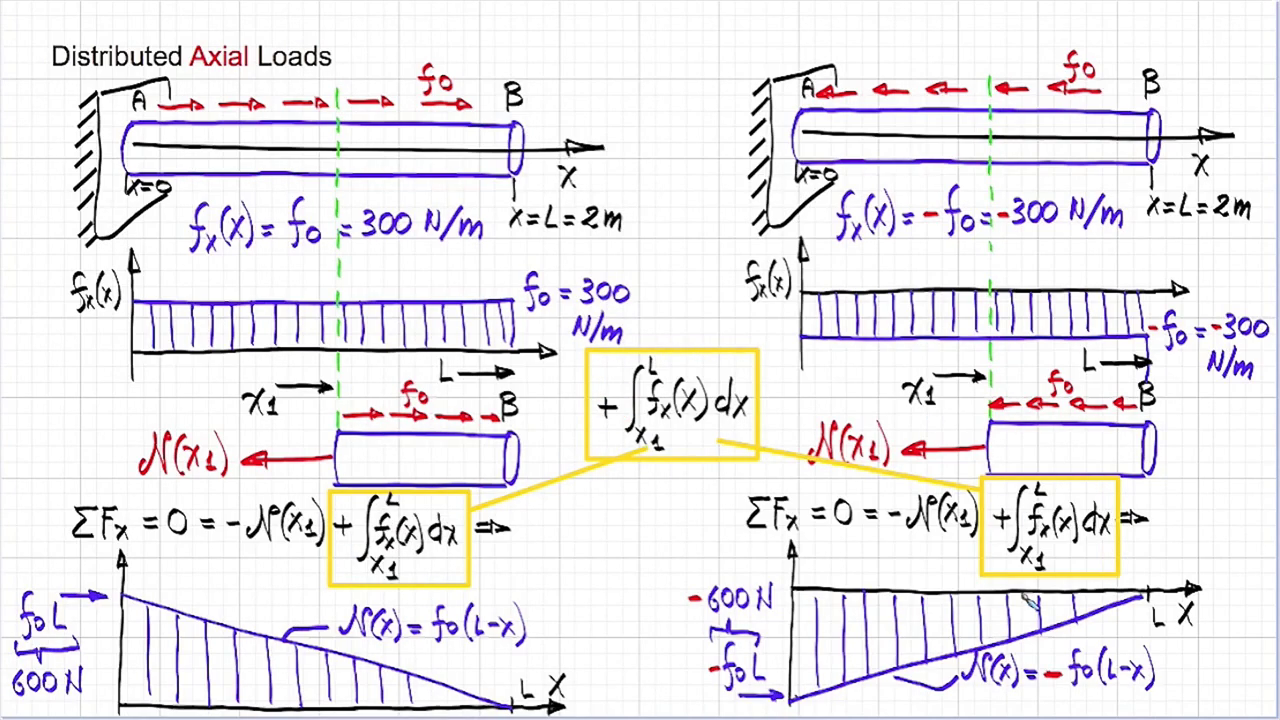 Distributed Axial Loads
A
f₀
B
x=0
x
x=L=2m
fₓ(x) = f₀ = 300 N/m
fₓ(x)
f₀ = 300
N/m
L
x₁
f₀
B
N(x₁)
ΣFₓ = 0 = -N(x₁) + ∫_{x₁}^{L} fₓ(x) dx ⇒
f₀L
600 N
N(x) = f₀(L-x)
L X
+ ∫_{x₁}^{L} fₓ(x) dx
A
f₀
B
x=0
x
x=L=2m
fₓ(x) = -f₀ = -300 N/m
fₓ(x)
-f₀ = -300
N/m
L
x₁
f₀
B
N(x₁)
ΣFₓ = 0 = -N(x₁) + ∫_{x₁}^{L} fₓ(x) dx ⇒
-600 N
-f₀L
L X
N(x) = -f₀(L-x)